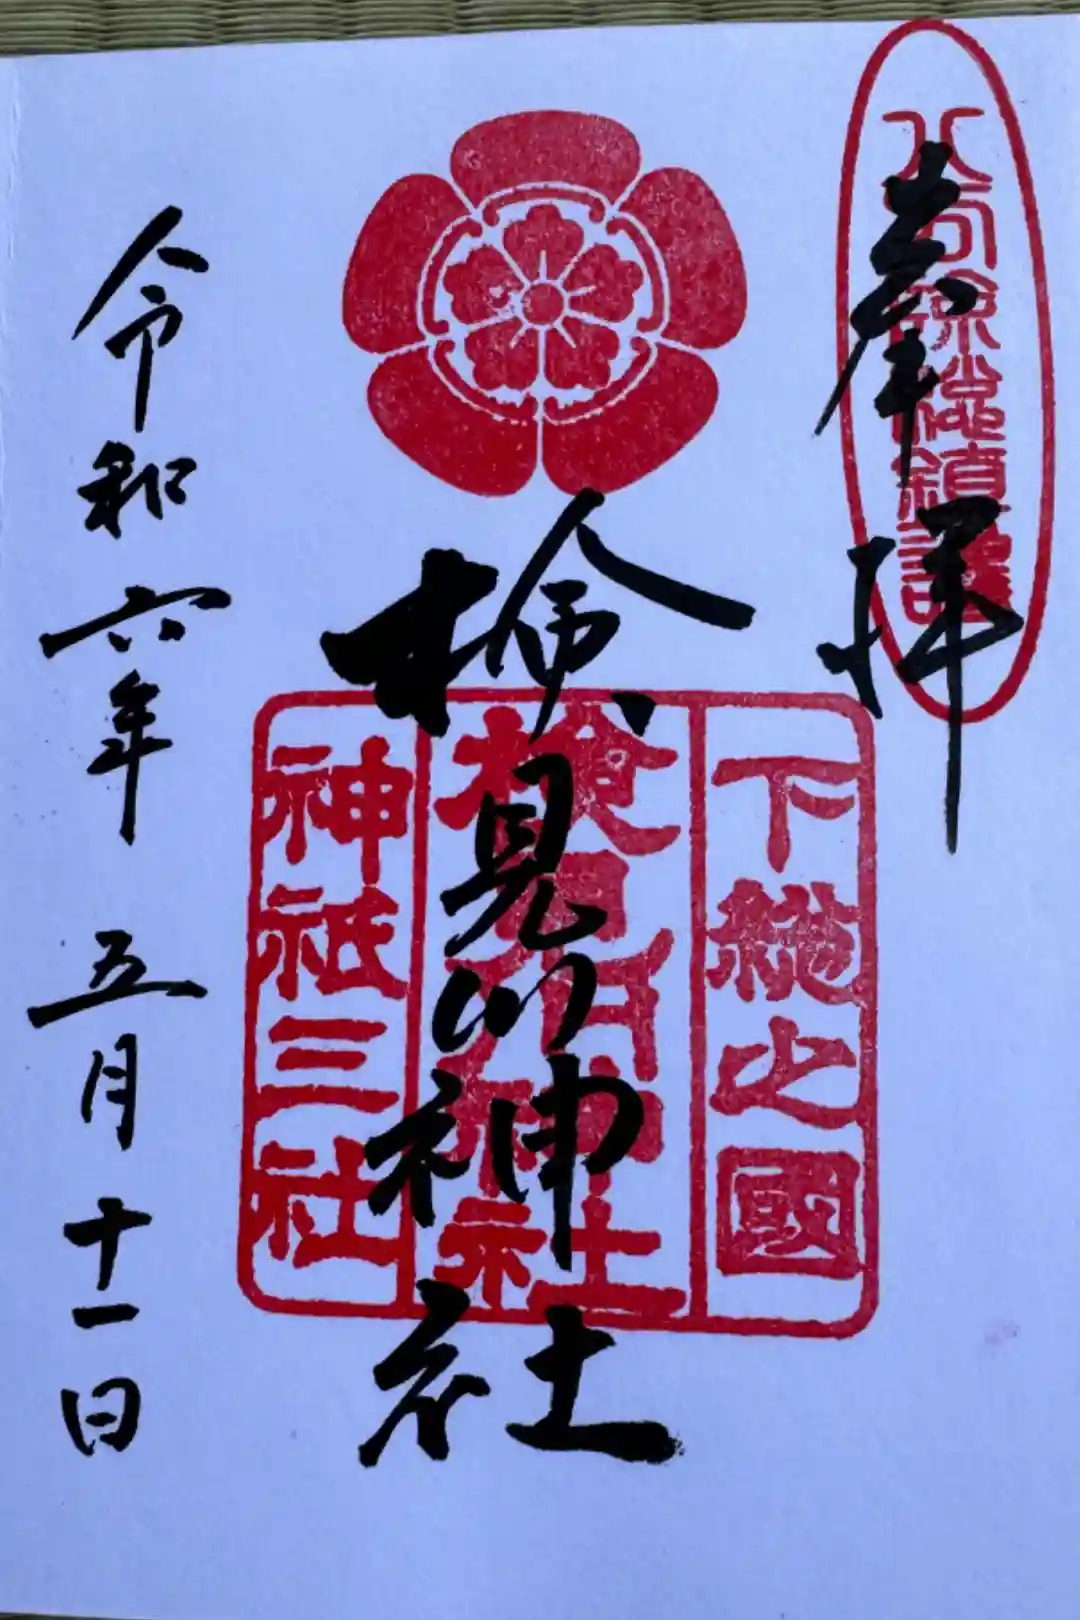 奉拝
八方除総鎮護
下総之國
検見川神社
検見川神社
神祇三社
令和六年五月十一日